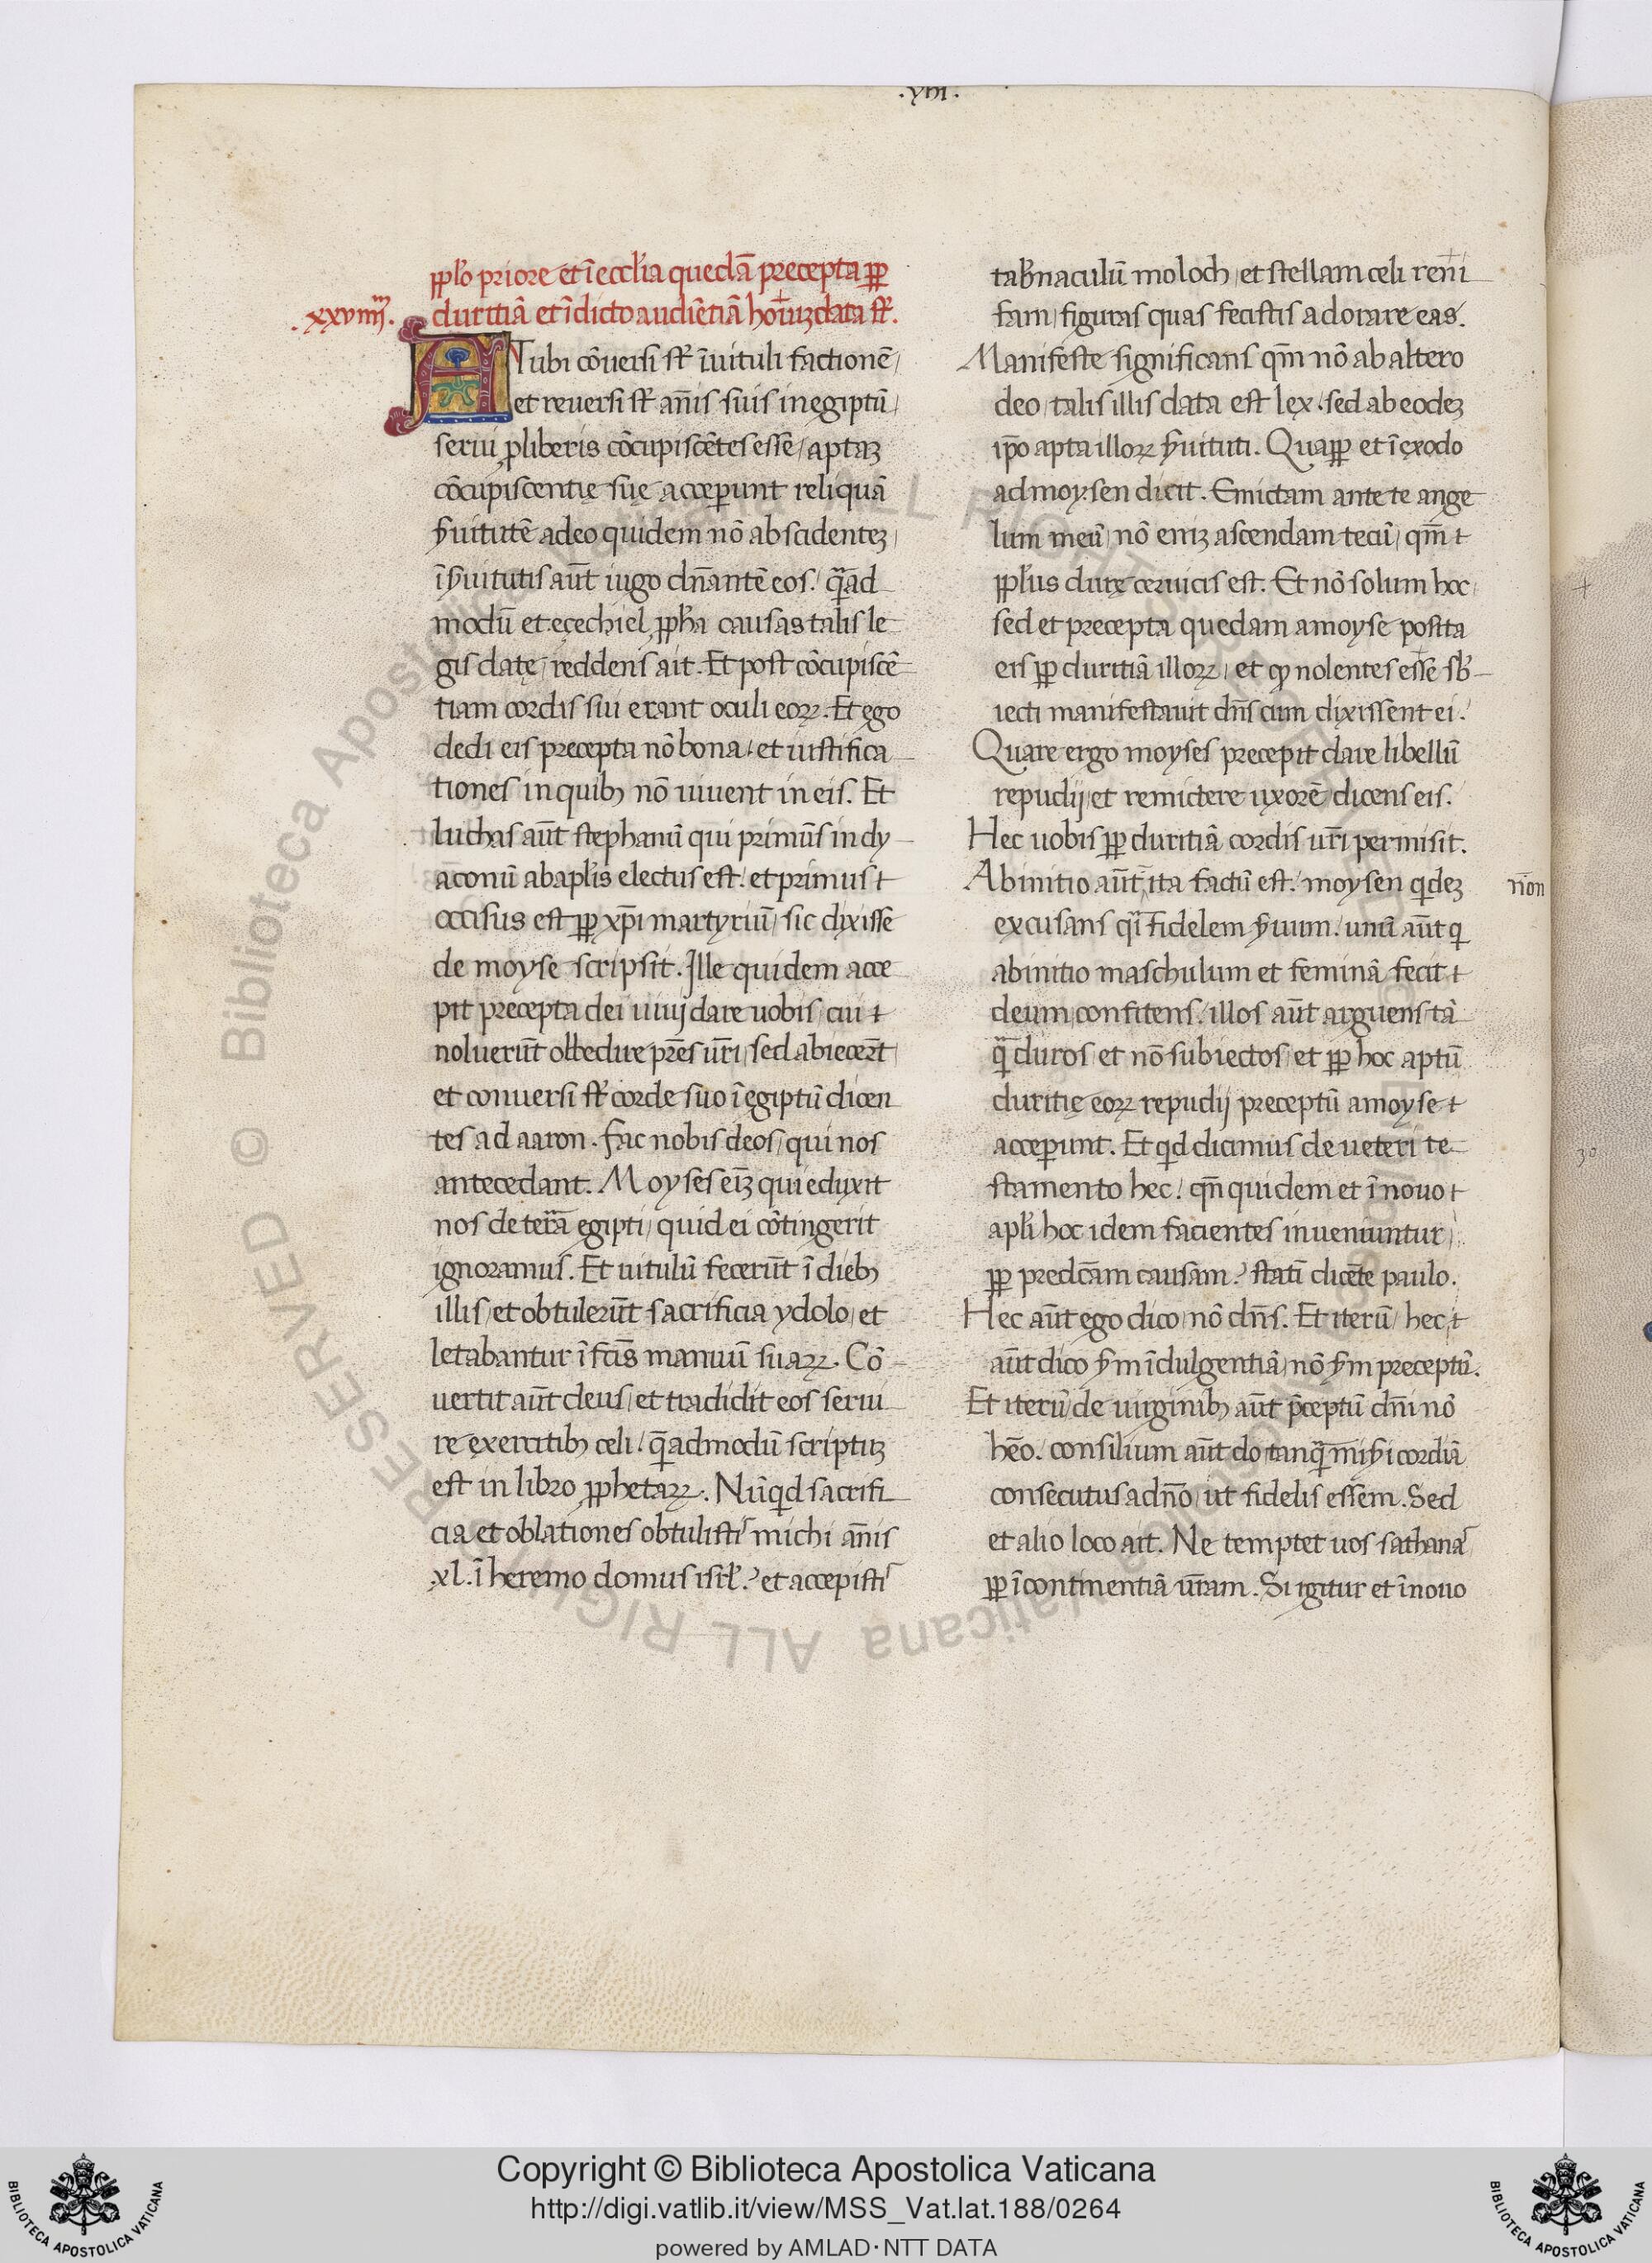 .viii.
pplo priore et ī ecclia quedā precepta pp
.xxviiii. duritiā et īdictoaudiētiā hoīuz data st̄.
AT ubi cōversi st̄ ī uituli factionē,
et reuersi st̄ aīis suis in egiptū,
serui p liberis cōcupiscētes esse, aptaz
cōcupiscentię suę acceperunt reliquā
s̄uitutē adeo quidem nō abscidentez,
ī s̄uitutis aūt iugo dn̄antē eos. quēad
modū et ezechiel ppha causas talis le
gis datę, reddens ait. Et post cōcupiscē
tiam cordis sui erant oculi eoꝝ. Et ego
dedi eis precepta nō bona, et iustifica
tiones in quibꝫ nō uiuent in eis. Et
luchas aūt stephanū qui primūs in dy
aconū ab aplis electus est. et primus
occisus est pp xp̄i martyriū, sic dixisse
de moyse scripsit. Ille quidem acce
pit precepta dei uiuij dare uobis, cui
noluerūt obedire pr̄es ur̄i, sed abiecer̄t,
et conuersi st̄ corde suo ī egiptū dicen
tes ad aaron. Fac nobis deos, qui nos
antecedant. Moyses eīz qui eduxit
nos de terrā egipti, quid ei cōtingerit
ignoramus. Et uitulū fecerūt ī diebꝫ
illis, et obtulerūt sacrificia ydolo, et
letabantur ī fc̄is manuū suaꝝ. Cō
uertit aūt deus, et tradidit eos serui
re exercitibꝫ celi. quēadmodū scriptuz
est in libro pphetaꝝ. Nūqd sacrifi
cia et oblationes obtulisti michi an̄is
xl. ī heremo domus isrl.? et accepisti
tabnaculū moloch, et stellam celi rem̄i
fam, figuras quas fecistis adorare eas.
Manifeste significans qm̄ nō ab altero
deo, talis illis data est lex. sed ab eodez
ip̄o apta illoꝝ s̄uituti. Quapp et ī exodo
ad moysen dicit. Emictam ante te ange
lum meū, nō eniz ascendam tecū, qm̄
pplus durę ceruicis est. Et nō solum hoc,
sed et precepta quedam a moyse postta
eis pp duritiā illoꝝ, et qꝫ nolentes esse sb
iecti manifestauit dn̄s cum dixissent ei.
Quare ergo moyses precepit dare libellū
repudij, et remictere uxorē, dicens eis.
Hec uobis pp duritiā cordis ur̄i permisit.
Ab initio aūt ita factū est. moysen qdez nō
excusans q̄i fidelem s̄uum. unū aūt q
ab initio maschulum et feminā fecit
deum confitens. illos aūt arguens tā
q̄ duros, et nō subiectos, et pp hoc aptū
duritię eoꝝ repudij preceptū a moyse
acceperunt. Et qd dicimus de ueteri te
stamento hec. qn̄ quidem et ī nouo
apli hoc idem facientes inueniuntur,
pp predc̄am causam? statī dicēte paulo.
Hec aūt ego dico, nō dn̄s. Et iterū, hec
aūt dico s̄m īdulgentiā, nō s̄m preceptū.
Et iterū, de uirginibꝫ aūt p̄ceptū dn̄i nō
hēo. consilium aūt do, tanq̄ mis̄icordiā
consecutus a dn̄o, ut fidelis essem. Sed
et alio loco ait. Ne temptet uos sathanas
pp īcontinentiā ur̄am. Si igitur et ī nouo
30
© Biblioteca Apostolica Vaticana ALL RIGHTS RESERVED
BIBLIOTECA APOSTOLICA VATICANA
Copyright © Biblioteca Apostolica Vaticana
http://digi.vatlib.it/view/MSS_Vat.lat.188/0264
powered by AMLAD·NTT DATA
BIBLIOTECA APOSTOLICA VATICANA